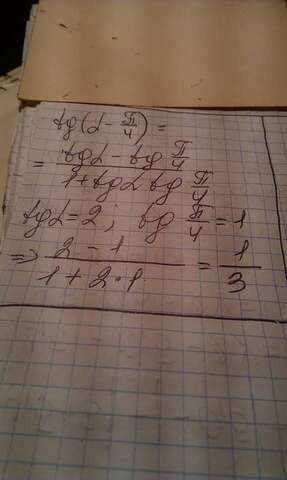 tg(α - π/4) =
= (tgα - tg π/4)/(1 + tgα tg π/4)
tgα = 2; tg π/4 = 1
=> (2 - 1)/(1 + 2·1) = 1/3